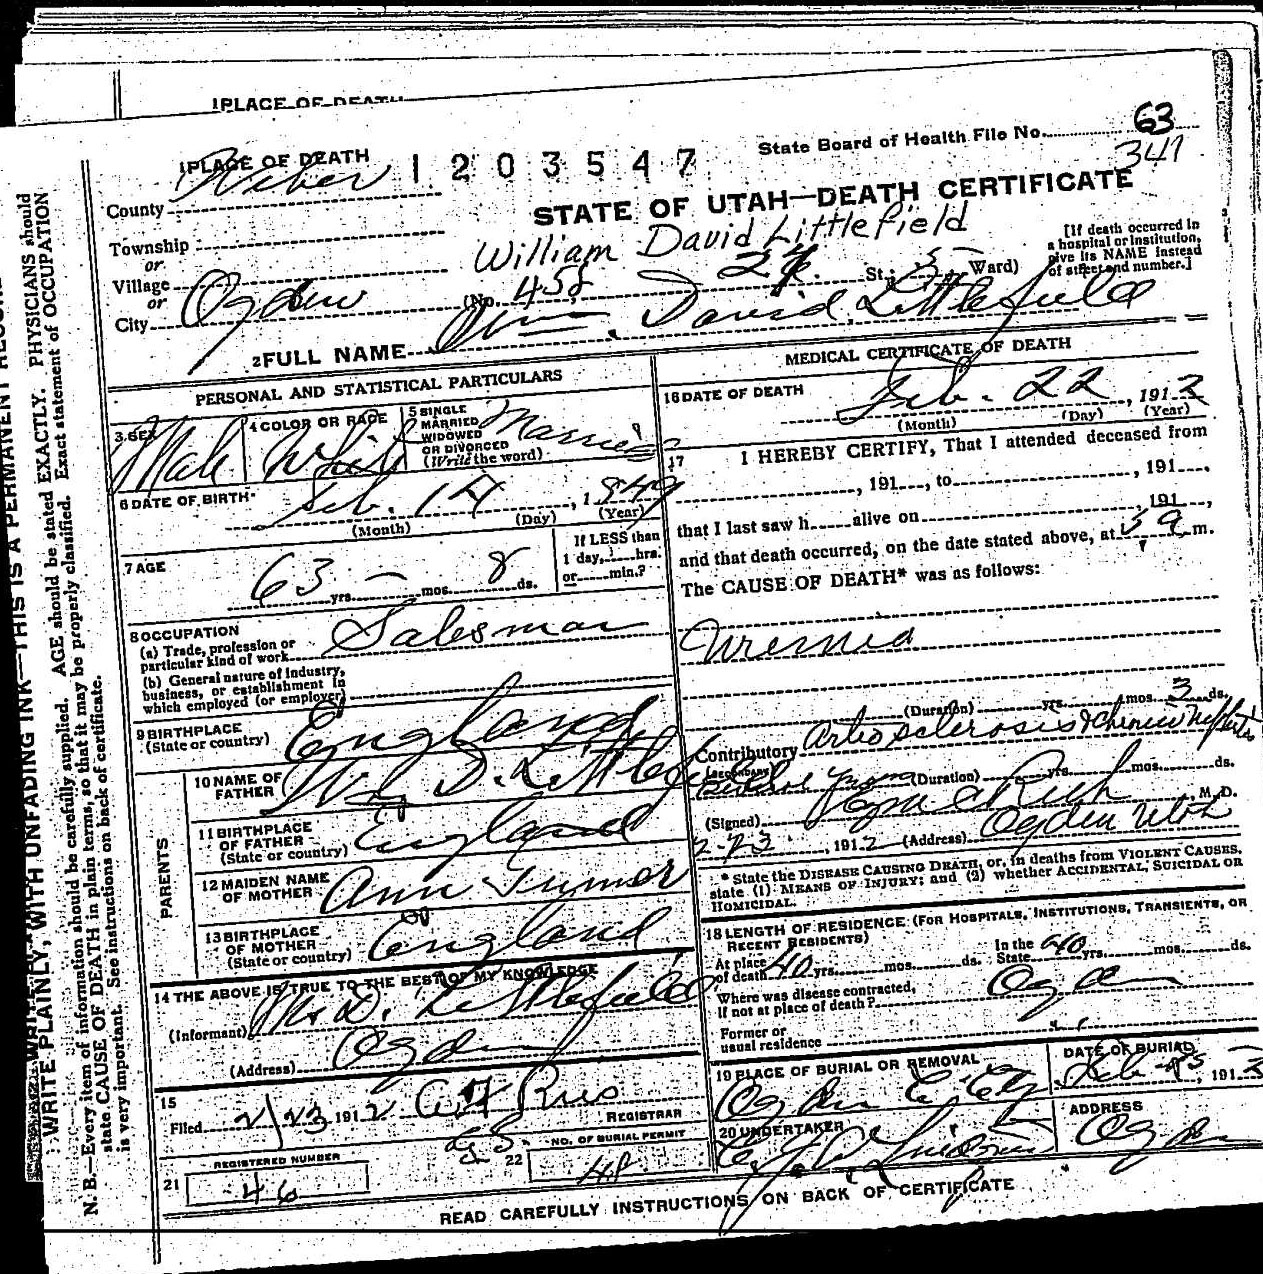 1 PLACE OF DEATH
State Board of Health File No. 63
1 PLACE OF DEATH 1203547
341
County Weber
STATE OF UTAH—DEATH CERTIFICATE
Township
William David Littlefield
or
Village
or
City Ogden
(No. 458 24. St.; 5 Ward)
[If death occurred in
a hospital or institution,
give its NAME instead
of street and number.]
2 FULL NAME Wm. David Littlefield
PERSONAL AND STATISTICAL PARTICULARS
3 SEX Male
4 COLOR OR RACE White
5 SINGLE
MARRIED
WIDOWED
OR DIVORCED
(Write the word)
Married
6 DATE OF BIRTH Feb. 14, 1849
(Month) (Day) (Year)
7 AGE
63 yrs. — mos. 8 ds.
If LESS than
1 day, hrs.
or min.?
8 OCCUPATION
(a) Trade, profession or
particular kind of work Salesman
(b) General nature of industry,
business, or establishment in
which employed (or employer)
9 BIRTHPLACE
(State or country) England
PARENTS
10 NAME OF
FATHER Wm D. Littlefield
11 BIRTHPLACE
OF FATHER
(State or country) England
12 MAIDEN NAME
OF MOTHER Ann
13 BIRTHPLACE
OF MOTHER
(State or country) England
14 THE ABOVE IS TRUE TO THE BEST OF MY KNOWLEDGE
(Informant) D. Littlefield
(Address) Ogden
15
Filed 2/23 1912
REGISTRAR
REGISTERED NUMBER
21 46
22 NO. OF BURIAL PERMIT
48
MEDICAL CERTIFICATE OF DEATH
16 DATE OF DEATH
Feb. 22, 1912
(Month) (Day) (Year)
17 I HEREBY CERTIFY, That I attended deceased from
, 191 , to , 191 .
that I last saw h alive on 191 ,
and that death occurred, on the date stated above, at 5 a m.
The CAUSE OF DEATH* was as follows:
Uremia
(Duration) yrs. mos. 3 ds.
Contributory Arteosclerosis & chronic nephritis
(SECONDARY) (Duration) yrs. mos. ds.
(Signed) Rich, M. D.
2-23, 1912 (Address) Ogden Utah
* State the DISEASE CAUSING DEATH, or, in deaths from VIOLENT CAUSES,
state (1) MEANS OF INJURY; and (2) whether ACCIDENTAL, SUICIDAL OR
HOMICIDAL.
18 LENGTH OF RESIDENCE (FOR HOSPITALS, INSTITUTIONS, TRANSIENTS, OR
RECENT RESIDENTS)
At place
of death 40 yrs. mos. ds.
In the
State 40 yrs. mos. ds.
Where was disease contracted,
if not at place of death? Ogden
Former or
usual residence
19 PLACE OF BURIAL OR REMOVAL
Ogden City
DATE OF BURIAL
Feb 25, 1912
20 UNDERTAKER
ADDRESS
Ogden
READ CAREFULLY INSTRUCTIONS ON BACK OF CERTIFICATE
WRITE PLAINLY, WITH UNFADING INK—THIS IS A PERMANENT RECORD
N. B.—Every item of information should be carefully supplied. AGE should be stated EXACTLY. PHYSICIANS should
state CAUSE OF DEATH in plain terms, so that it may be properly classified. Exact statement of OCCUPATION
is very important. See instructions on back of certificate.